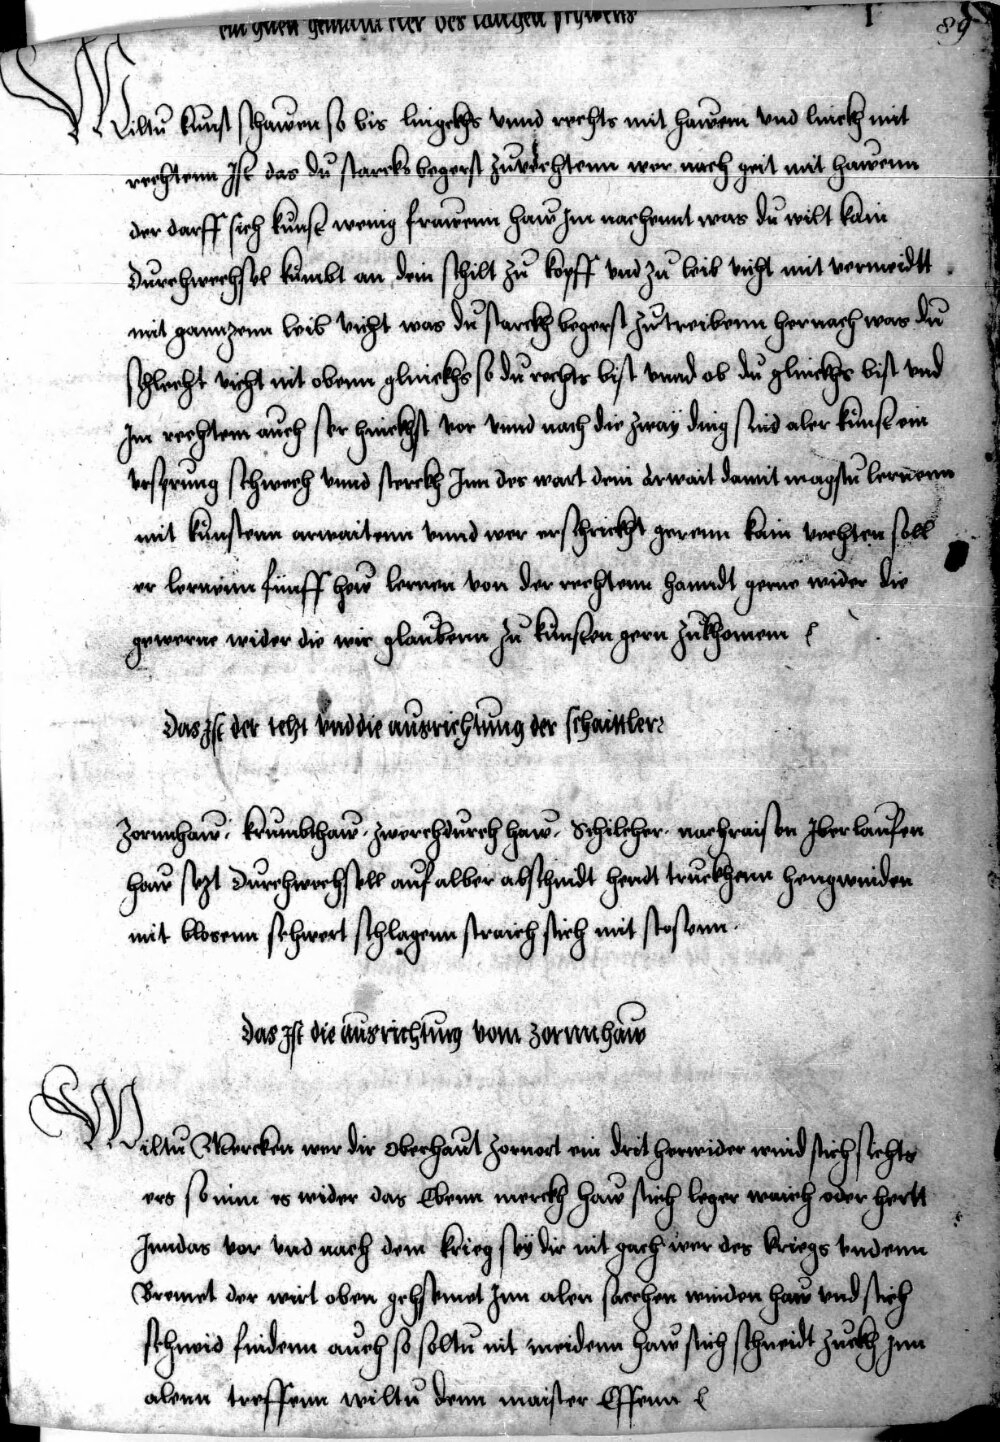 ein guett gemaine ler des langen schwerts
89
Wiltu kunst schawen so bis linngekhs vnnd rechts mit hawem vnd linckh mit
rechtenn Ist das du starcks begerst zuvechtenn wer nach geit mit hawenn
der darff sich kunst wenig frawenn haw Im nachennt was du wilt kain
durchwechsel kumbt an dein schilt zu kopff vnd zu leib vicht mit vermeidtt
mit gannzenn leib vicht was du starckh begerst zutreibenn hernach was du
schlecht vicht nit obenn glinckhs so du rechts bist vnnd ob du glinckhs bist vnd
Im rechtem auch ser hinckhst vor vnnd nach die zway ding sind aler kunst ein
vrsprung schwech vnnd sterckh Inn des wart dein arwait damit magstu lernenn
mit kunstenn arwaitenn vnnd wer erschrickht gerenn kain vechten soll
er lernenn fünff hew lernen von der rechtenn hanndt gerne wider die
gewerne wider die wir glaubenn zu kunsten gern zukhomem
Das Ist der text vnd die ausrichtung der schaittler
Zornnhaw krumbthaw zwerchdurch haw Schilcher nachraisen Iberlaufen
haw sezt durchwechsell auf alber abschnidt hendt truckhenn hengwinden
mit blosenn schwert schlagenn straich stich mit stosenn
Das Ist die ausrichtung vom zornnhaw
Wiltu Mercken wer dir oberhaut zornort ein drit herwider wind stich sichts
ers so nim es wider das Ebenn merckh haw stich leger waich oder hertt
Inndas vor vnd nach dem krieg sey dir nit gach wer des kriegs vndenn
Bremet der wirt oben geschemet Inn alen saechen winden haw vnd stich
schnid findenn auch so soltu nit meidenn haw stich schneidt zuckh Inn
alenn treffenn wiltu denn maister Effenn